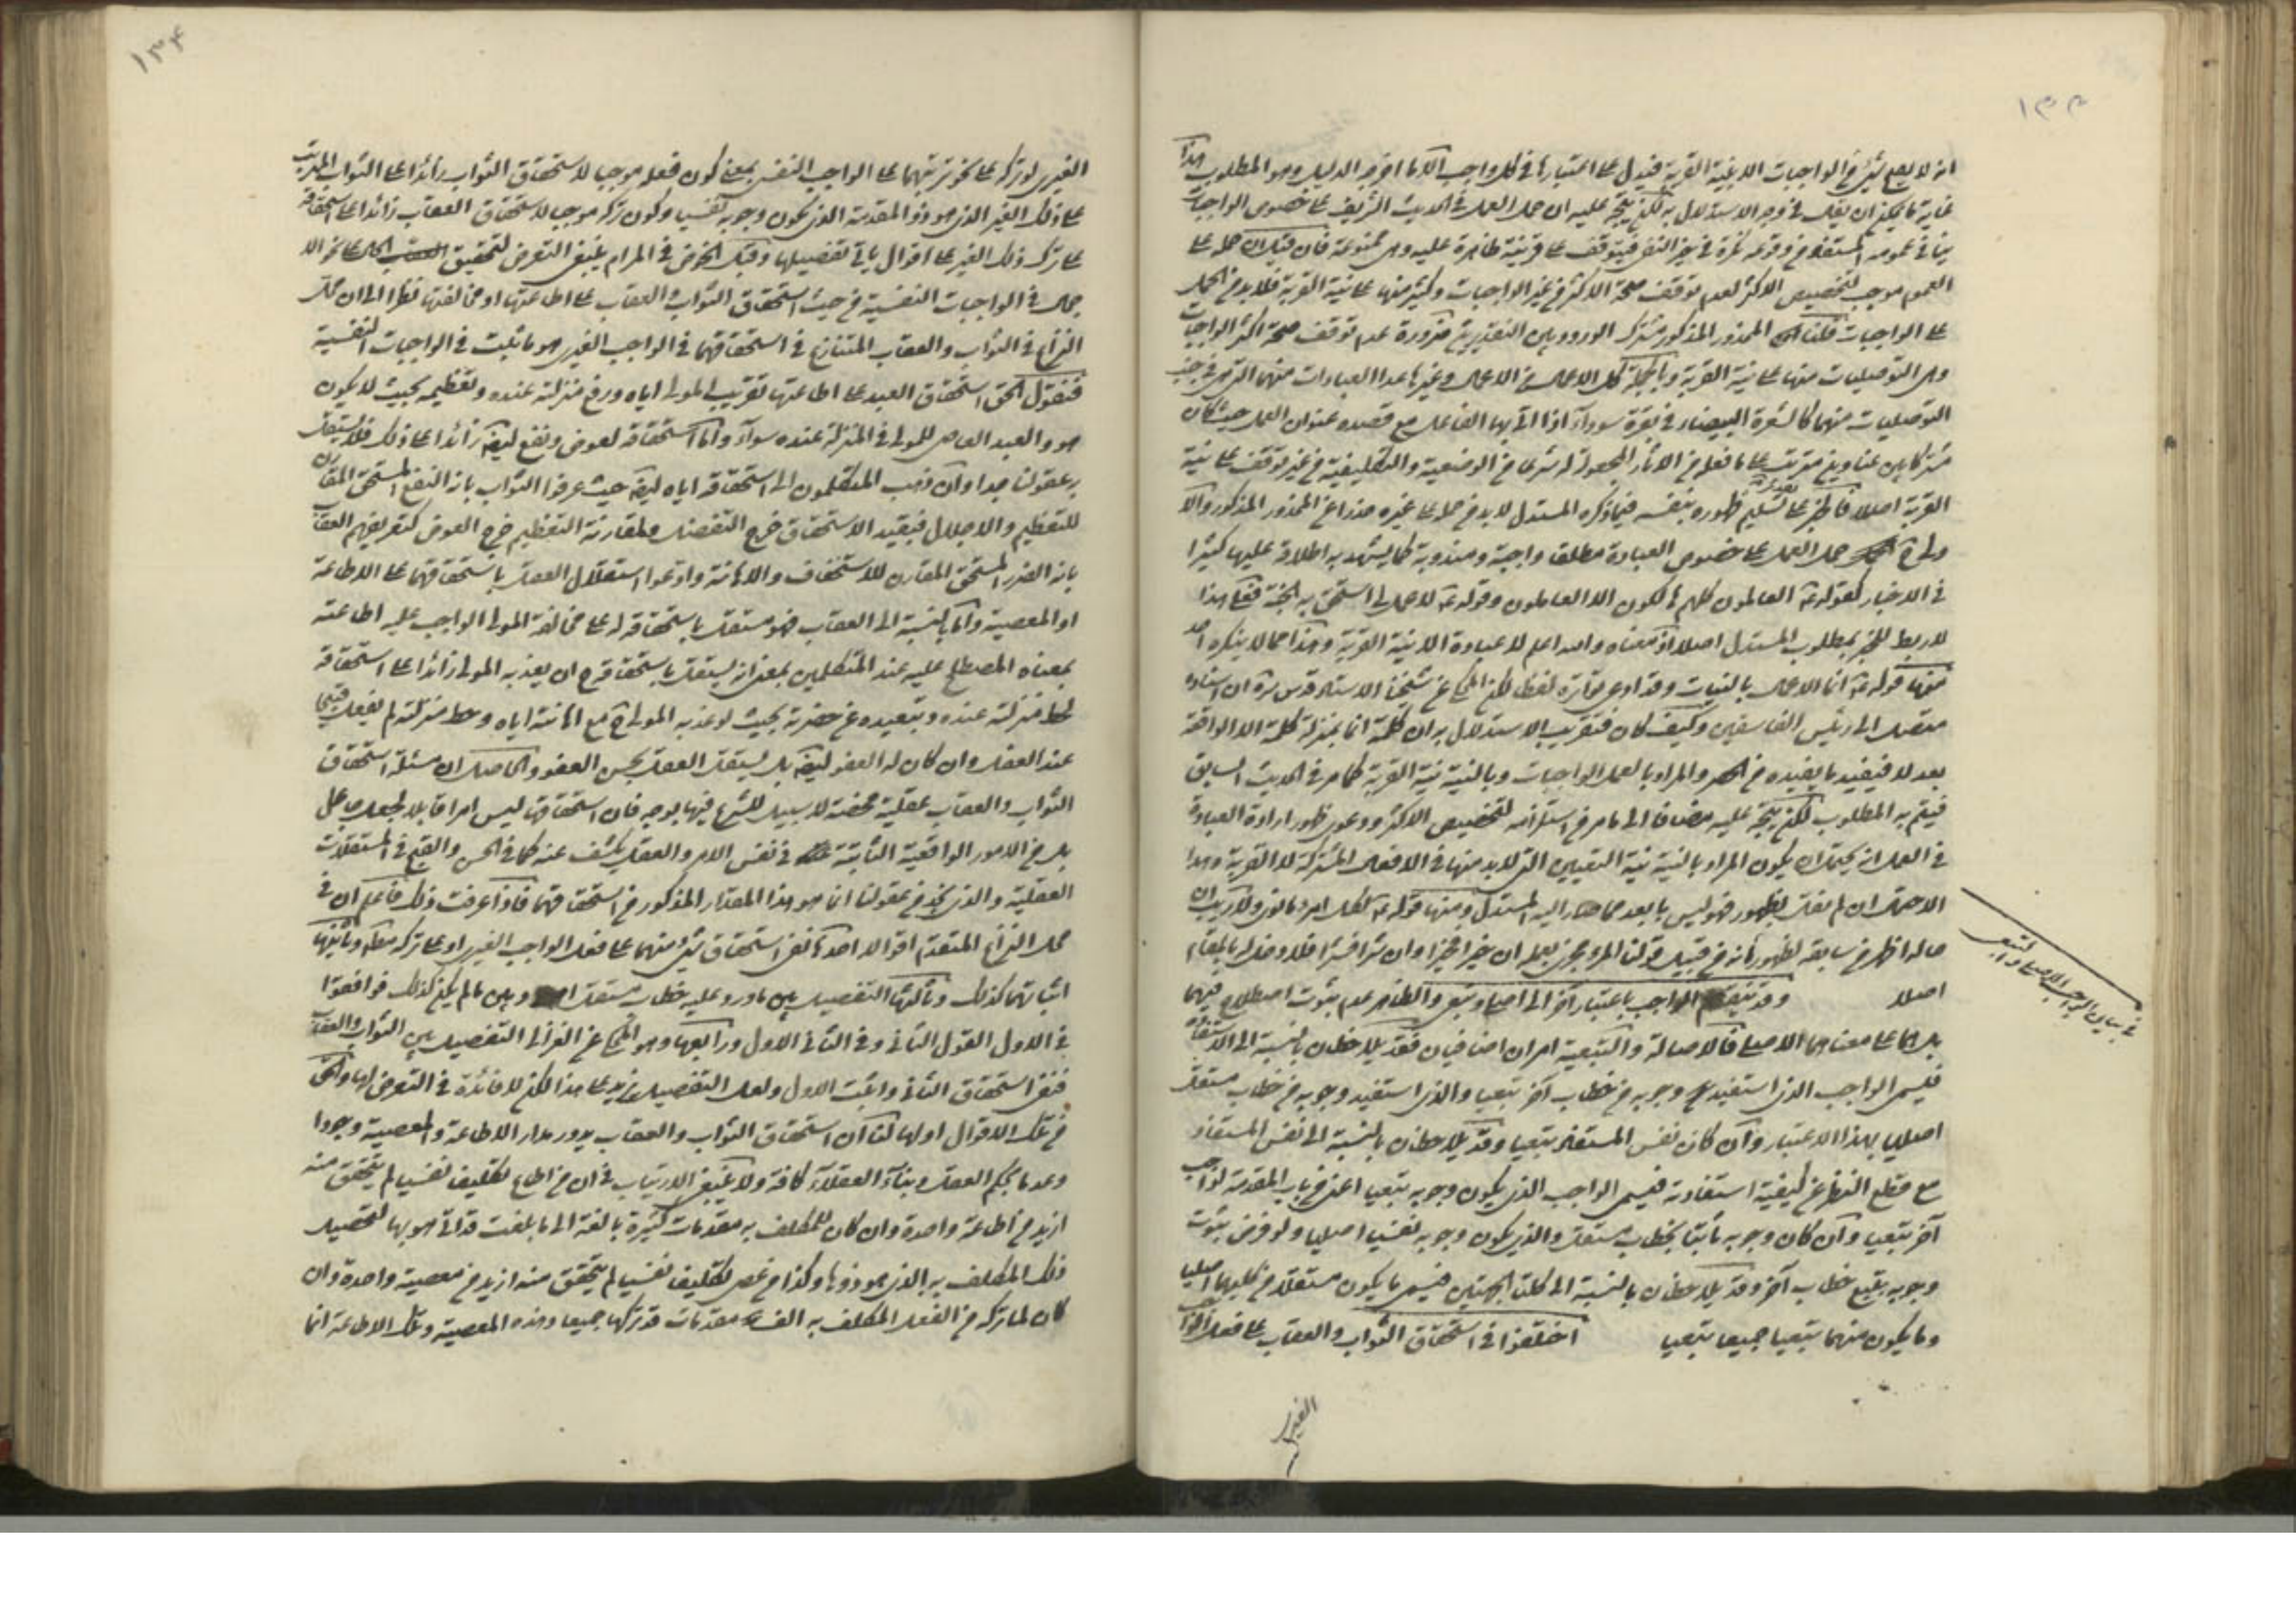 ١٣٣
انه لا يصح شئ من الواجبات الا بنية القربة فيدل على اعتبارها في كل واجب الا ما اخرجه الدليل وهو المطلوب هذا
غاية ما يمكن ان يقال في وجه الاستدلال به لكن يتجه عليه ان حمل العمل في الحديث الشريف على خصوص الواجبات
ينافي عمومه المستفاد من وقوعه نكرة في حيز النفي فيتوقف على قرينة ظاهرة عليه وهي ممنوعة فان قيل ان حمله على
العموم موجب لتخصيص الاكثر لعدم توقف صحة الاكثر من غير الواجبات وكثير منها على نية القربة فلا بد من الحمل
على الواجبات قلنا المحذور المذكور مشترك الورود بين التقديرين ضرورة عدم توقف صحة اكثر الواجبات
وهي التوصليات منها على نية القربة وبالجملة كل الاعمال من الاعمال وغيرها عدا العبادات منهما التي هي في جنب
التوصليات منهما كالشعرة البيضاء في بقرة سوداء اذا اتى بها الفاعل مع قصده عنوان العمل حيث كان
مشتركا بين عناوين مترتب على ما فعله من الاثار المجعولة له شرعا من الوضعية والتكليفية من غير توقف على نية
القربة اصلا فالخبر على تسليم ظهوره بنفسه فيما ذكره المستدل لا بد من حمله على غيره حذرا عن المحذور المذكور والا
حمل العمل على خصوص العبادة مطلقا واجبة ومندوبة كما يشهد به اطلاقه عليها كثيرا
في الاخبار كقوله العالمون كلهم هالكون الا العاملون وقوله لا عمل لي استحق به الجنة فعلى هذا
لا ربط للخبر بمطلوب المستدل اصلا اذ معناه والله اعلم لا عبادة الا بنية القربة وهذا مما لا ينكره احد
منها قوله انما الاعمال بالنيات وقد ادعى تواتره لفظا لكن المحكي عن شيخنا الاستاد قدس سره ان اسناده
متصل الى رئيس الفاسقين وكيف كان فتقريب الاستدلال به ان كلمة انما بمنزلة كلمة الا الواقعة
بعد لا فيفيد ما يفيده من الحصر والمراد بالعمل الواجبات وبالنية نية القربة كما مر في الحديث السابق
فيتم به المطلوب لكن يتجه عليه مضافا الى ما مر من استلزامه لتخصيص الاكثر ودعوى ظهور ارادة العبادة
في العمل انه يحتمل ان يكون المراد بالنية نية التعيين التي لا بد منها في الافعال المشتركة لا القربة وهذا
الاحتمال ان لم نقل بظهوره فليس بابعد مما صار اليه المستدل ومنها قوله لكل امرء ما نوى ولا ريب ان
حاله اظهر من سابقه لظهور انه من قبيل قولنا المرء مجزى بعمله ان خيرا فخيرا وان شرا فشرا فلا دخل له بالمقام
اصلا وقد ينقسم الواجب باعتبار آخر الى اصلي وتبعي والظاهر عدم ثبوت اصطلاح فيهما
بل هما على معناهما الاصلي فالاصالة والتبعية امران اضافيان فقد يلاحظان بالنسبة الى الاستفادة
فيسمى الواجب الذي استفيد وجوبه من خطاب آخر تبعيا والذي استفيد وجوبه من خطاب مستقل
اصليا بهذا الاعتبار وان كان نفس المستفاد تبعيا وقد يلاحظان بالنسبة الى نفس المستفاد
مع قطع النظر عن كيفية استفادته فيسمى الواجب الذي يكون وجوبه تبعيا اعني من باب المقدمة لواجب
آخر تبعيا وان كان وجوبه ثابتا بخطاب مستقل والذي يكون وجوبه نفسيا اصليا ولو فرض ثبوت
وجوبه بتبع خطاب آخر وقد يلاحظان بالنسبة الى كلتا الجهتين فيسمى ما يكون مستقلا من كليهما اصليا
وما يكون منهما تبعيا جميعا تبعيا اختلفوا في استحقاق الثواب والعقاب على فعل الواجب
الغيري
في بيان الواجب الاصلي والتبعي
١٣٤
الغيري او تركه على نحو ترتبهما على الواجب النفسي بمعنى كون فعله موجبا لاستحقاق الثواب زائدا على الثواب المترتب
على ذلك الغير الذي هو ذو المقدمة الذي يكون وجوبه نفسيا وكون تركه موجبا لاستحقاق العقاب زائدا على استحقاقه
على ترك ذلك الغير على اقوال ياتي تفصيلها وقبل الخوض في المرام ينبغي التعرض لتحقيق الحال على نحو الا
جمال في الواجبات النفسية من حيث استحقاق الثواب والعقاب على اطاعتها او مخالفتها نظرا الى ان محل
النزاع في الثواب والعقاب المتنازع في استحقاقهما في الواجب الغيري هو ما ثبت في الواجبات النفسية
فنقول الحق استحقاق العبد على اطاعتها تقريب المولى اياه ورفع منزلته عنده وتعظيمه بحيث لا يكون
هو والعبد العاصي للمولى في المنزلة عنده سواء واما استحقاقه لعوض ونفع ايضا زائدا على ذلك فلا يستقل
به عقولنا جدا وان ذهب المتكلمون الى استحقاقه اياه ايضا حيث عرفوا الثواب بانه النفع المستحق المقارن
للتعظيم والاجلال فبقيد الاستحقاق خرج التفضل وبمقارنة التعظيم خرج العوض كتعريفهم العقاب
بانه الضرر المستحق المقارن للاستخفاف والاهانة وادعوا استقلال العقل باستحقاقهما على الاطاعة
او المعصية واما بالنسبة الى العقاب فهو مستقل باستحقاقه له على مخالفة المولى الواجب عليه اطاعته
بمعناه المصطلح عليه عند المتكلمين بمعنى انه يستقل باستحقاقه ان يعذبه المولى زائدا على استحقاقه
لحط منزلته عنده وتبعيده عن حضرته بحيث لو عذبه المولى مع اهانته اياه وحط منزلته لم يفعل قبيحا
عند العقل وان كان له العفو ايضا بل يستقل العقل بحسن العفو والحاصل ان مسئلة استحقاق
الثواب والعقاب عقلية محضة لا سبيل للشرع فيها بوجه فان استحقاقها ليس امرا قابلا لجعل جاعل
بل من الامور الواقعية الثابتة في نفس الامر والعقل يكشف عنه كما في الحسن والقبح في المستقلات
العقلية والذي نجد من عقولنا انما هو هذا المقدار المذكور من استحقاقهما فاذا عرفت ذلك فاعلم ان في
محل النزاع المتقدم اقوالا احدها نفي استحقاق شئ منهما على فعل الواجب الغيري او على تركه مطلقا وثانيها
اثباتهما كذلك وثالثها التفصيل بين ما ورد عليه خطاب مستقل وبين ما لم يكن كذلك فوافقوا
في الاول القول الثاني وفي الثاني الاول ورابعها وهو المحكي عن الغزالي التفصيل بين الثواب والعقاب
فنفى استحقاق الثاني واثبت الاول ولعل التفصيل يزيد على هذا لكن لا فائدة في التعرض لها والحق
من تلك الاقوال اولها لنا ان استحقاق الثواب والعقاب يدور مدار الاطاعة والمعصية وجودا
وعدما بحكم العقل وبناء العقلاء كافة ولا ينبغي الارتياب في ان من اطاع تكليفا نفسيا لم يتحقق منه
ازيد من اطاعة واحدة وان كان للمكلف به مقدمات كثيرة بالغة الى ما بلغت قد اتى هو بها لتحصيل
ذلك المكلف به الذي هو ذوها وكذا من عصى تكليفا نفسيا لم يتحقق منه ازيد من معصية واحدة وان
كان لما تركه من الفعل المكلف به الف مقدمات قد تركها جميعا وهذه المعصية وتلك الاطاعة انما